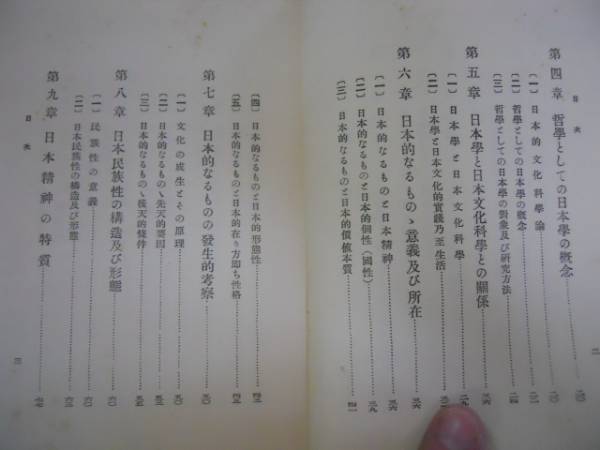 目次
第四章 哲學としての日本學の概念
〔一〕 日本的文化科學論
〔二〕 哲學としての日本學の概念
〔三〕 哲學としての日本學の對象及び研究方法
第五章 日本學と日本文化科學との關係
〔一〕 日本學と日本文化科學
〔二〕 日本學と日本文化的實踐乃至生活
第六章 日本的なるものゝ意義及び所在
〔一〕 日本的なるものと日本精神
〔二〕 日本的なるものと日本的個性(國性)
〔三〕 日本的なるものと日本的價値本質
二
〔四〕 日本的なるものと日本的形態性
〔五〕 日本的なるものと日本的在り方卽ち性格
第七章 日本的なるものの發生的考察
〔一〕 文化の成生とその原理
〔二〕 日本的なるものゝ先天的要因
〔三〕 日本的なるものゝ後天的條件
第八章 日本民族性の構造及び形態
〔一〕 民族性の意義
〔二〕 日本民族性の構造及び形態
第九章 日本精神の特質
目次
三